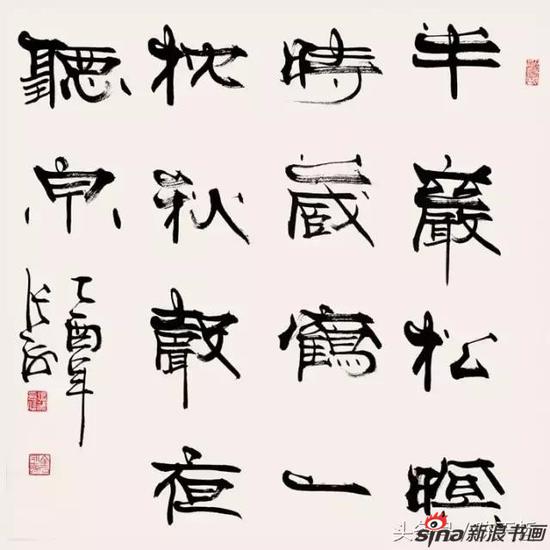 半巖松暝
時藏鶴一
枕秋聲夜
聽泉
乙酉年
张海
sina新浪书画